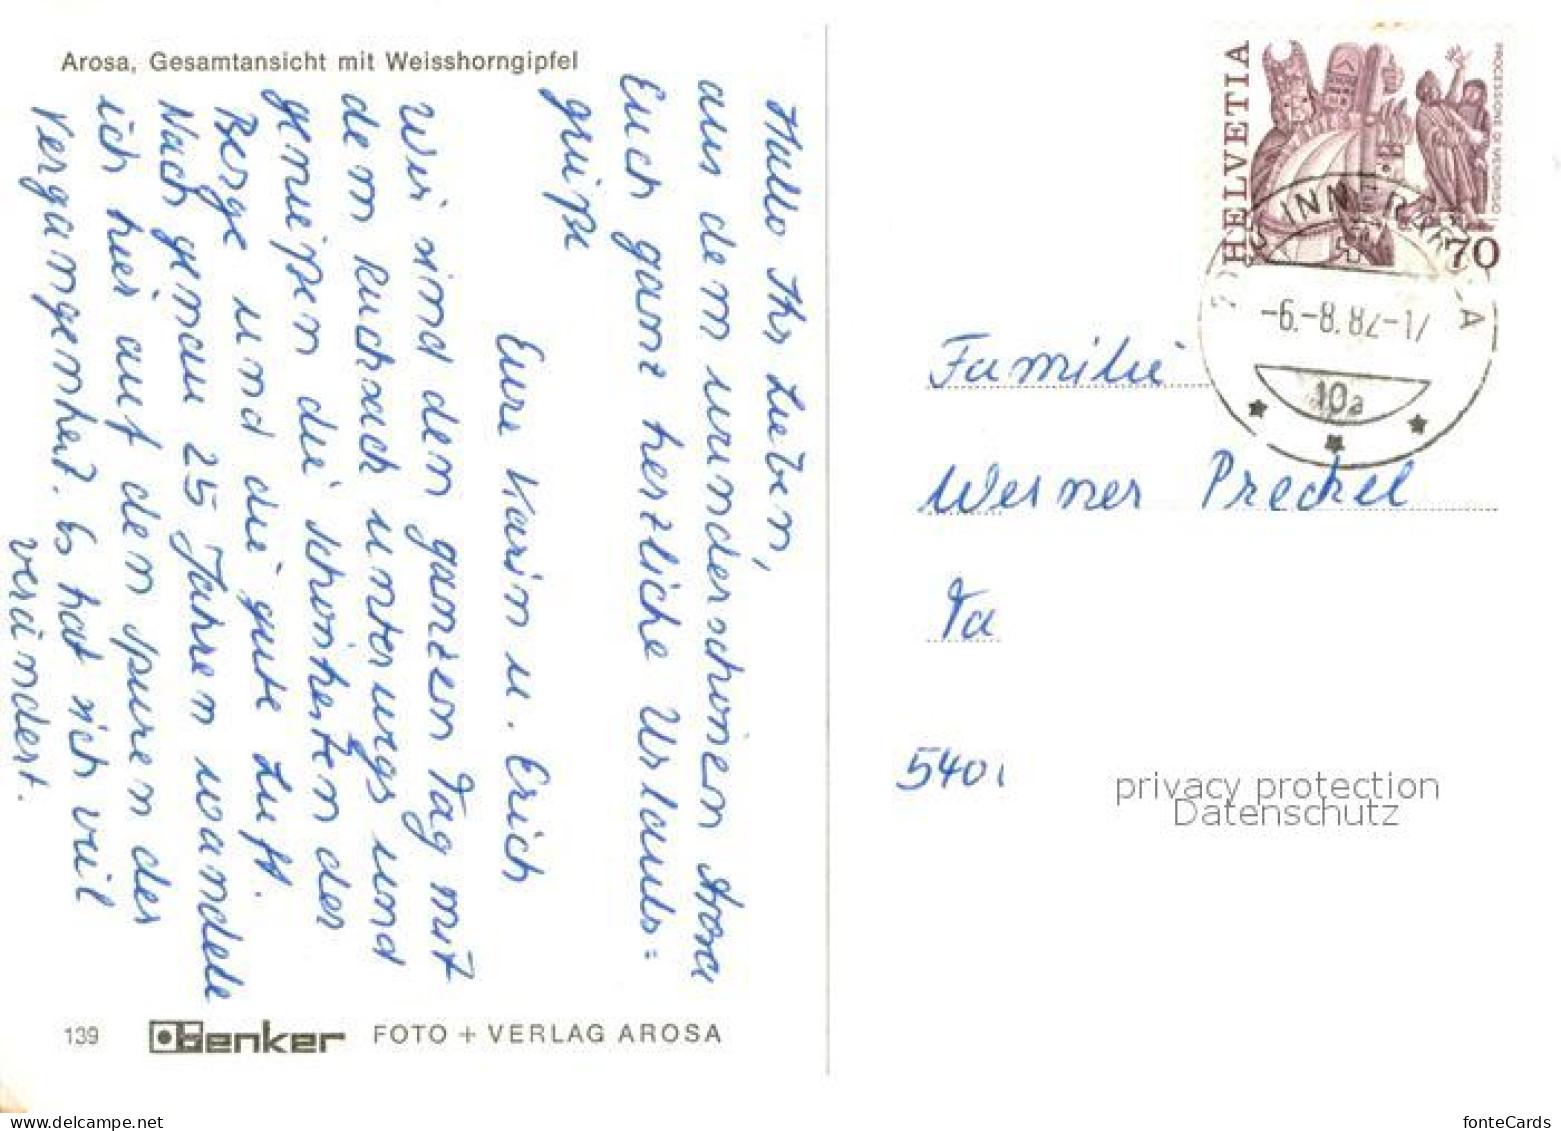 Arosa, Gesamtansicht mit Weisshorngipfel
Hallo Ihr Lieben,
aus dem wunderschönen Arosa
Euch ganz herzliche Urlaubs=
grüße
Eure Karin u. Erich
Wir sind den ganzen Tag mit
dem Ruchsack unterwegs und
genießen die Schönheiten der
Berge und die gute Luft.
Nach genau 25 Jahren wandele
ich hier auf den Spuren der
Vergangenheit. Es hat sich viel
verändert.
139 Benker FOTO + VERLAG AROSA
HELVETIA
PROCESSIONE DI MENDRISIO
70
-6.-8.82-17
10a
Familie
Werner Preckel
5401
privacy protection
Datenschutz
www.delcampe.net
fonteCards